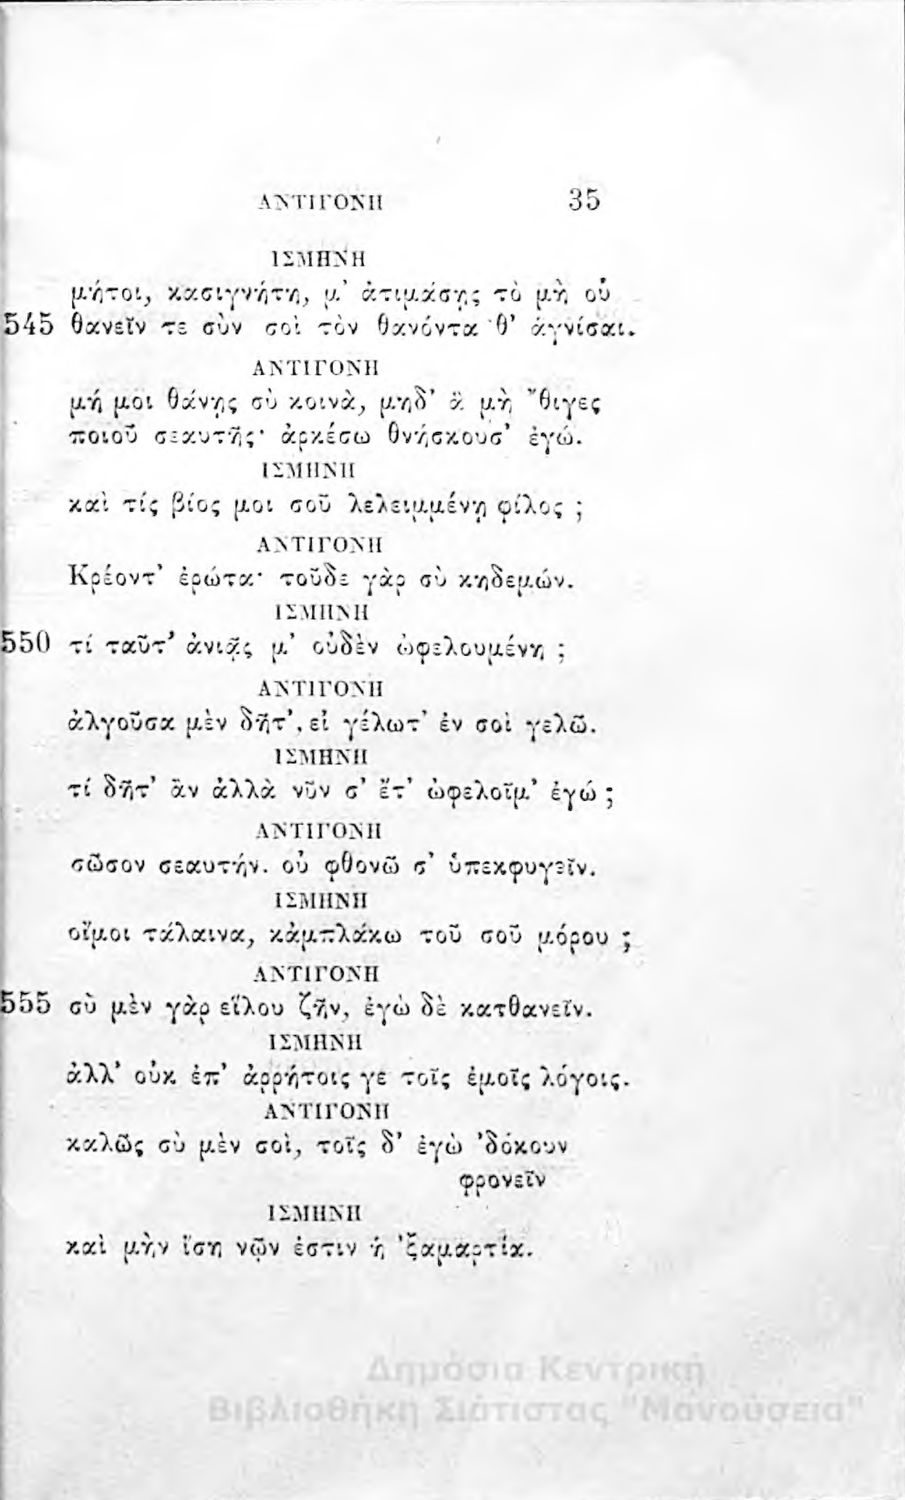 ΑΝΤΙΓΟΝΗ 35
ΙΣΜΗΝΗ
μήτοι, κασιγνήτη, μ᾽ ἀτιμάσῃς τὸ μὴ οὐ
545 θανεῖν τε σὺν σοὶ τὸν θανόντα θ᾽ ἁγνίσαι.
ΑΝΤΙΓΟΝΗ
μή μοι θάνῃς σὺ κοινὰ, μηδ᾽ ἃ μὴ ῎θιγες
ποιοῦ σεαυτῆς· ἀρκέσω θνήσκουσ᾽ ἐγώ.
ΙΣΜΗΝΗ
καὶ τίς βίος μοι σοῦ λελειμμένῃ φίλος ;
ΑΝΤΙΓΟΝΗ
Κρέοντ᾽ ἐρώτα· τοῦδε γὰρ σὺ κηδεμών.
ΙΣΜΗΝΗ
550 τί ταῦτ᾽ ἀνιᾷς μ᾽ οὐδὲν ὠφελουμένη ;
ΑΝΤΙΓΟΝΗ
ἀλγοῦσα μὲν δῆτ᾽, εἰ γέλωτ᾽ ἐν σοὶ γελῶ.
ΙΣΜΗΝΗ
τί δῆτ᾽ ἂν ἀλλὰ νῦν σ᾽ ἔτ᾽ ὠφελοῖμ᾽ ἐγώ ;
ΑΝΤΙΓΟΝΗ
σῶσον σεαυτήν. οὐ φθονῶ σ᾽ ὑπεκφυγεῖν.
ΙΣΜΗΝΗ
οἴμοι τάλαινα, κἀμπλάκω τοῦ σοῦ μόρου ;
ΑΝΤΙΓΟΝΗ
555 σὺ μὲν γὰρ εἵλου ζῆν, ἐγὼ δὲ κατθανεῖν.
ΙΣΜΗΝΗ
ἀλλ᾽ οὐκ ἐπ᾽ ἀρρήτοις γε τοῖς ἐμοῖς λόγοις.
ΑΝΤΙΓΟΝΗ
καλῶς σὺ μὲν σοὶ, τοῖς δ᾽ ἐγὼ ᾽δόκουν
φρονεῖν
ΙΣΜΗΝΗ
καὶ μὴν ἴση νῷν ἐστιν ἡ ᾽ξαμαρτία.
Δημόσια Κεντρική
Βιβλιοθήκη Σιάτιστας "Μανούσεια"